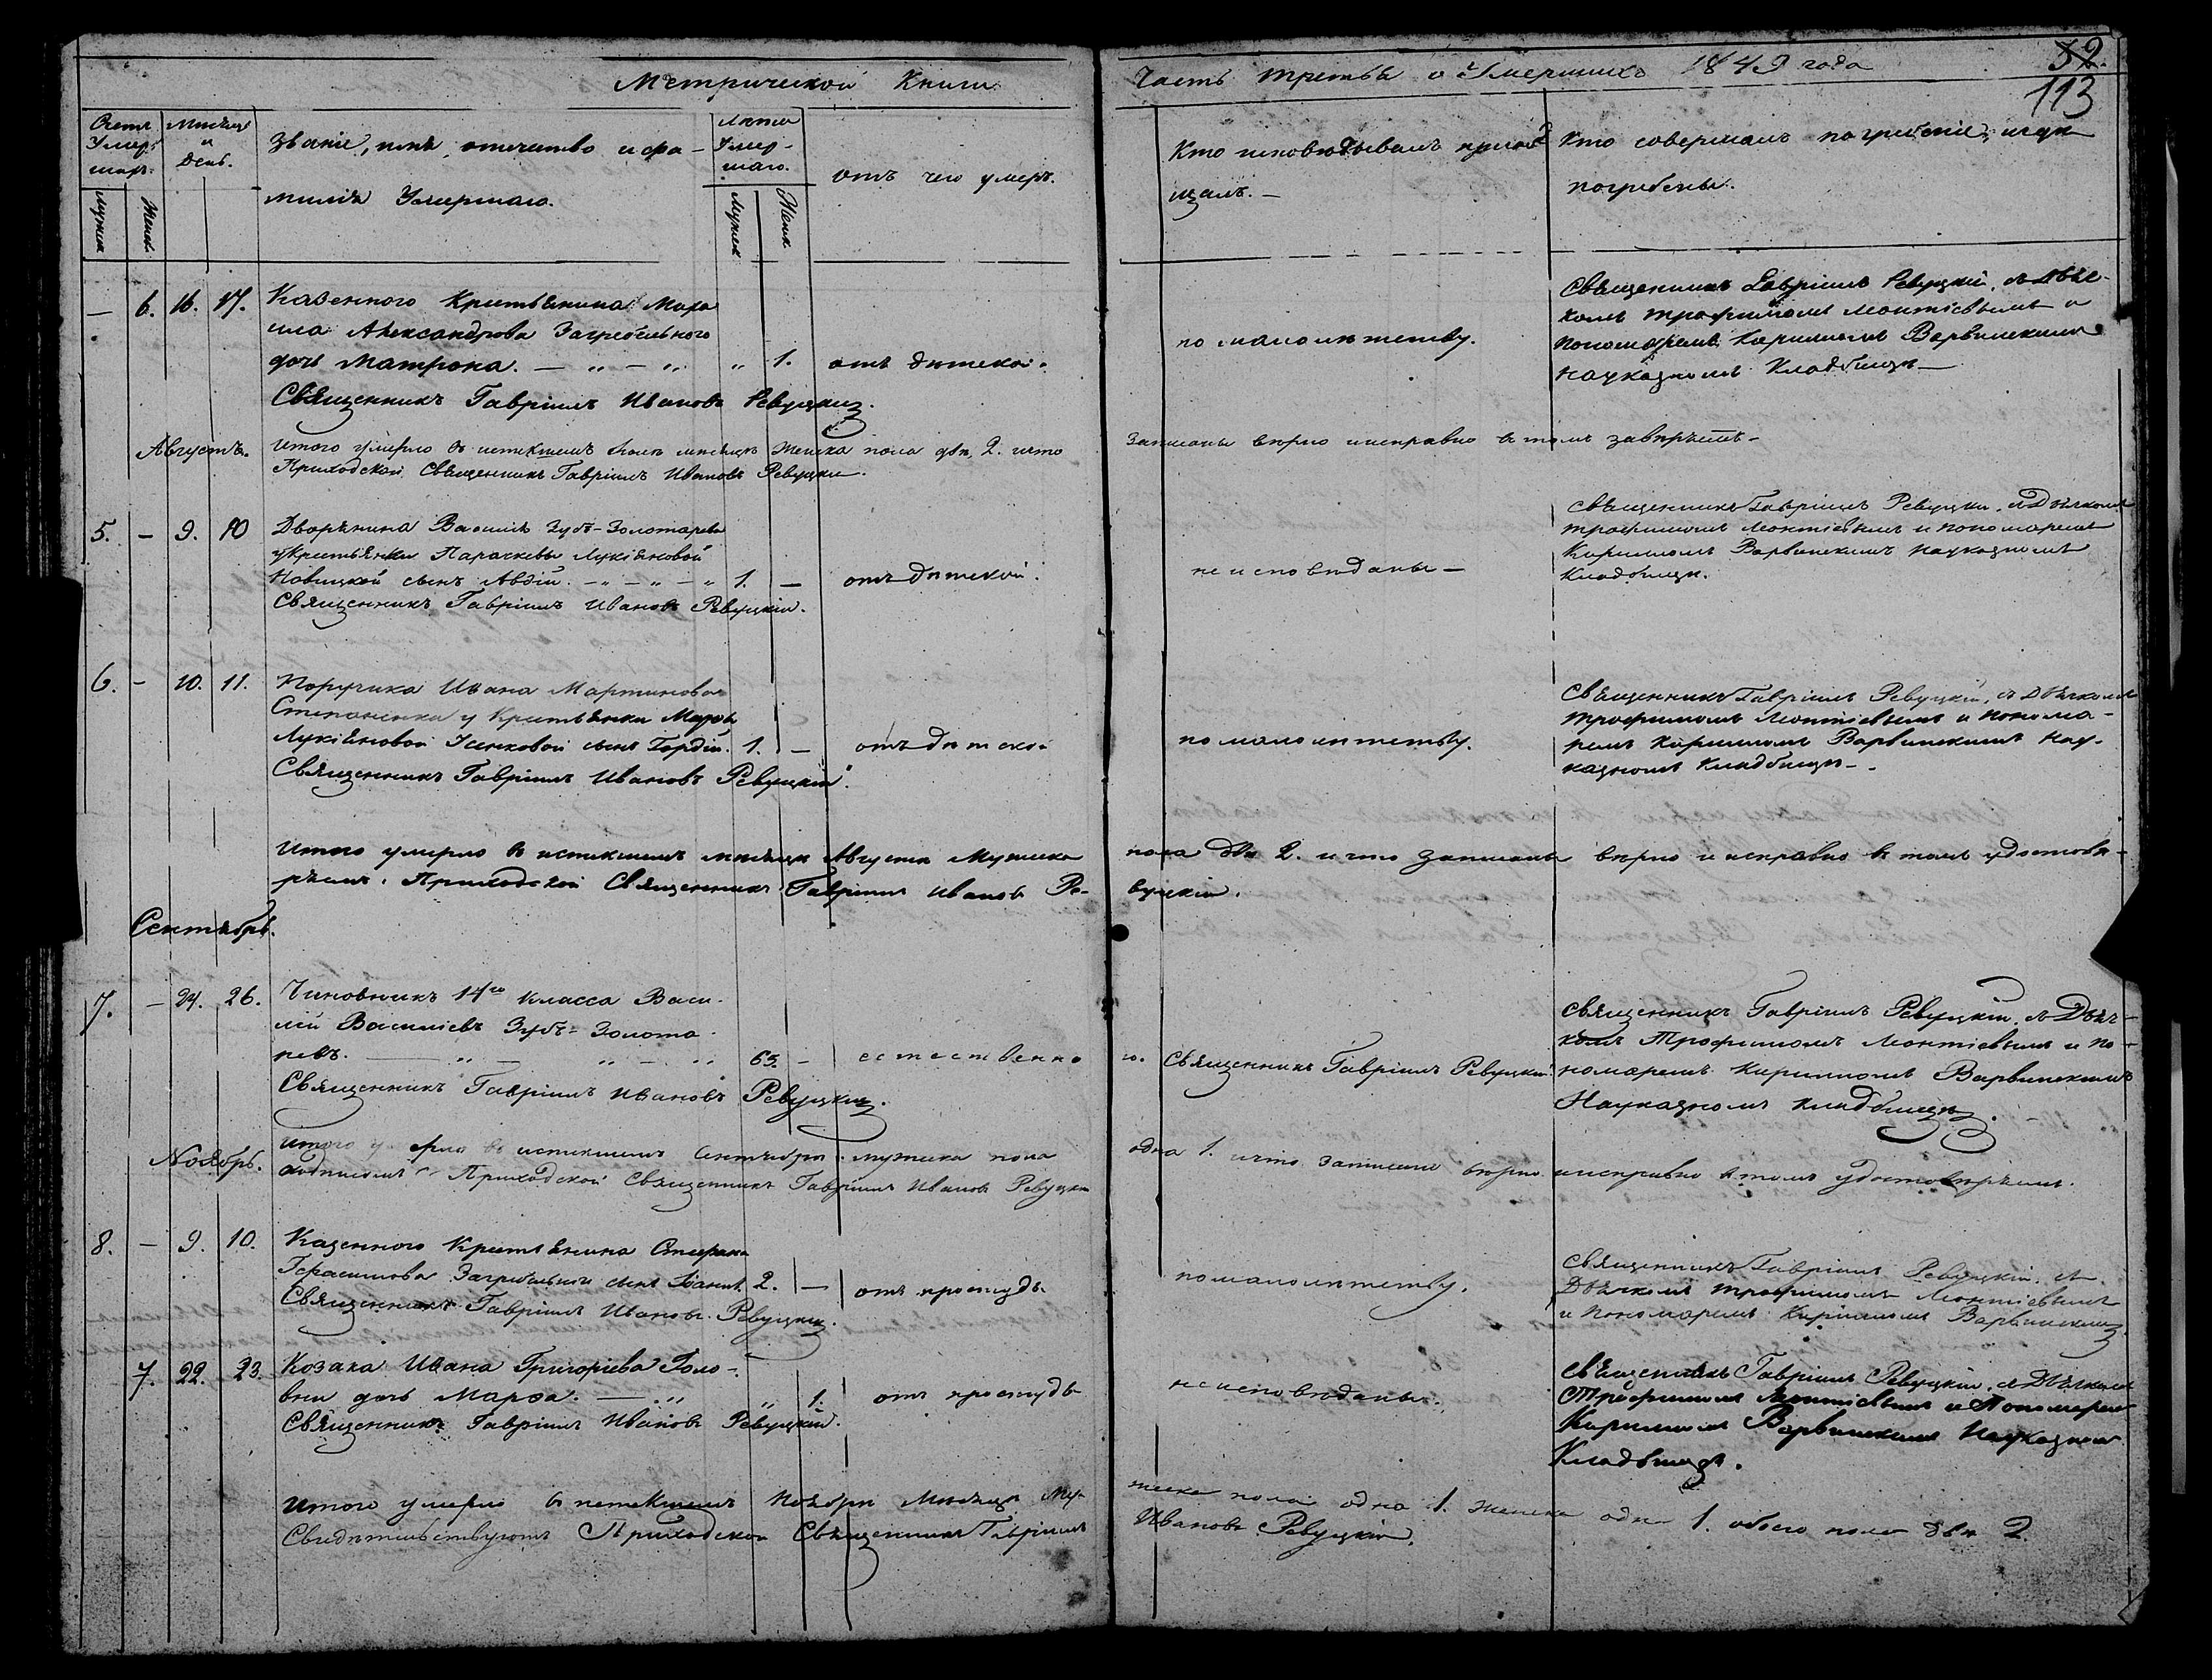 Метрической Книги
Часть третья о Умершихъ 1849 года
52.
113
Счетъ Умершихъ.
Мужеска
Женска
Мѣсяцъ и День.
Званіе, имя, отечество и фа-
милія Умершаго.
Лѣта Умер-
шаго.
Мужеск
Женск.
отъ чего умеръ.
Кто исповѣдывалъ и приоб
щалъ. —
Кто совершалъ погребеніе, и гдѣ
погребены.
— 6. 16. 17.
Казенного Крестьянина Миха
ила Александрова Загребельного
дочь Матрона. — „ — „ „ 1. отъ дѣтской.
Священникъ Гавріилъ Ивановъ Ревуцкій.
по малолѣтству.
Священникъ Гавріилъ Ревуцкій, съ Дьяч-
комъ Трофимомъ Леонтіевымъ и
пономаремъ Кириломъ Варвинскимъ
на указномъ Кладбищѣ —
Августъ.
Итого умерло въ истекшемъ Іюлѣ мѣсяцѣ Женска пола двѣ 2. и что
Приходской Священникъ Гавріилъ Ивановъ Ревуцкій.
Записаны вѣрно и исправно въ томъ завѣряемъ —
5. — 9. 10
Дворянина Василія Зубъ-Золотарева
у крестьянки Параскевы Лукіяновой
Новицкой сынъ Авдій. — „ — „ — „ 1. — отъ дѣтской.
Священникъ Гавріилъ Ивановъ Ревуцкій.
не исповѣданы —
Священникъ Гавріилъ Ревуцкій, съ Дьячкомъ
Трофимомъ Леонтіевымъ и пономаремъ
Кириломъ Варвинскимъ на указномъ
Кладбищѣ.
6. — 10. 11.
Поручика Ивана Мартинова
Степаненка у Крестьянки Марѳы
Лукіяновой Усенковой сынъ Гордій. 1. — отъ дѣтской
Священникъ Гавріилъ Ивановъ Ревуцкій.
по малолѣтству.
Священникъ Гавріилъ Ревуцкій, съ Дьячкомъ
Трофимомъ Леонтіевымъ и понома-
ремъ Кириломъ Варвинскимъ на у-
казномъ Кладбищѣ —.
Итого умерло въ истекшемъ мѣсяцѣ Августѣ Мужеска
пола двѣ 2. и что записаны вѣрно и исправно въ томъ удостовѣ-
ряемъ. Приходской Священникъ Гавріилъ Ивановъ Ре-
вуцкій.
Сентябрь.
7. — 24. 26.
Чиновникъ 14го класса Васи-
лій Василіевъ Зубъ-Золота-
ревъ. — „ — „ — „ 63. — естественно
го.
Священникъ Гавріилъ Ивановъ Ревуцкій.
Священникъ Гавріилъ Ревуцкій.
Священникъ Гавріилъ Ревуцкій, съ Дьяч-
комъ Трофимомъ Леонтіевымъ и по-
номаремъ Кириломъ Варвинскимъ
На указномъ кладбищѣ.
Ноябрь.
Итого умерло въ истекшемъ Сентябрѣ мужеска пола
одна 1. и что записано вѣрно и исправно въ томъ удостовѣряемъ.
Приходской Священникъ Гавріилъ Ивановъ Ревуцкій
8. — 9. 10.
Казенного Крестьянина Стефана
Герасимова Загребельного сынъ Іоаннъ. 2. — отъ простуды
Священникъ Гавріилъ Ивановъ Ревуцкій.
по малолѣтству.
Священникъ Гавріилъ Ревуцкій, съ
Дьячкомъ Трофимомъ Леонтіевымъ
и пономаремъ Кириломъ Варвинскимъ
7. 22. 23.
Козака Ивана Григоріева Голо-
вни дочь Марѳа. — „ „ 1. отъ простуды
Священникъ Гавріилъ Ивановъ Ревуцкій.
не исповѣданы.
Священникъ Гавріилъ Ревуцкій, съ Дьячкомъ
Трофимомъ Леонтіевымъ и Пономаремъ
Кириломъ Варвинскимъ На указномъ
Кладбищѣ.
Итого умерло въ истекшемъ Ноябрѣ Мѣсяцѣ Му-
жеска пола одна 1. Женска одна 1. обоего пола двѣ 2.
Свидѣтельствуютъ Приходской Священникъ Гавріилъ
Ивановъ Ревуцкій.